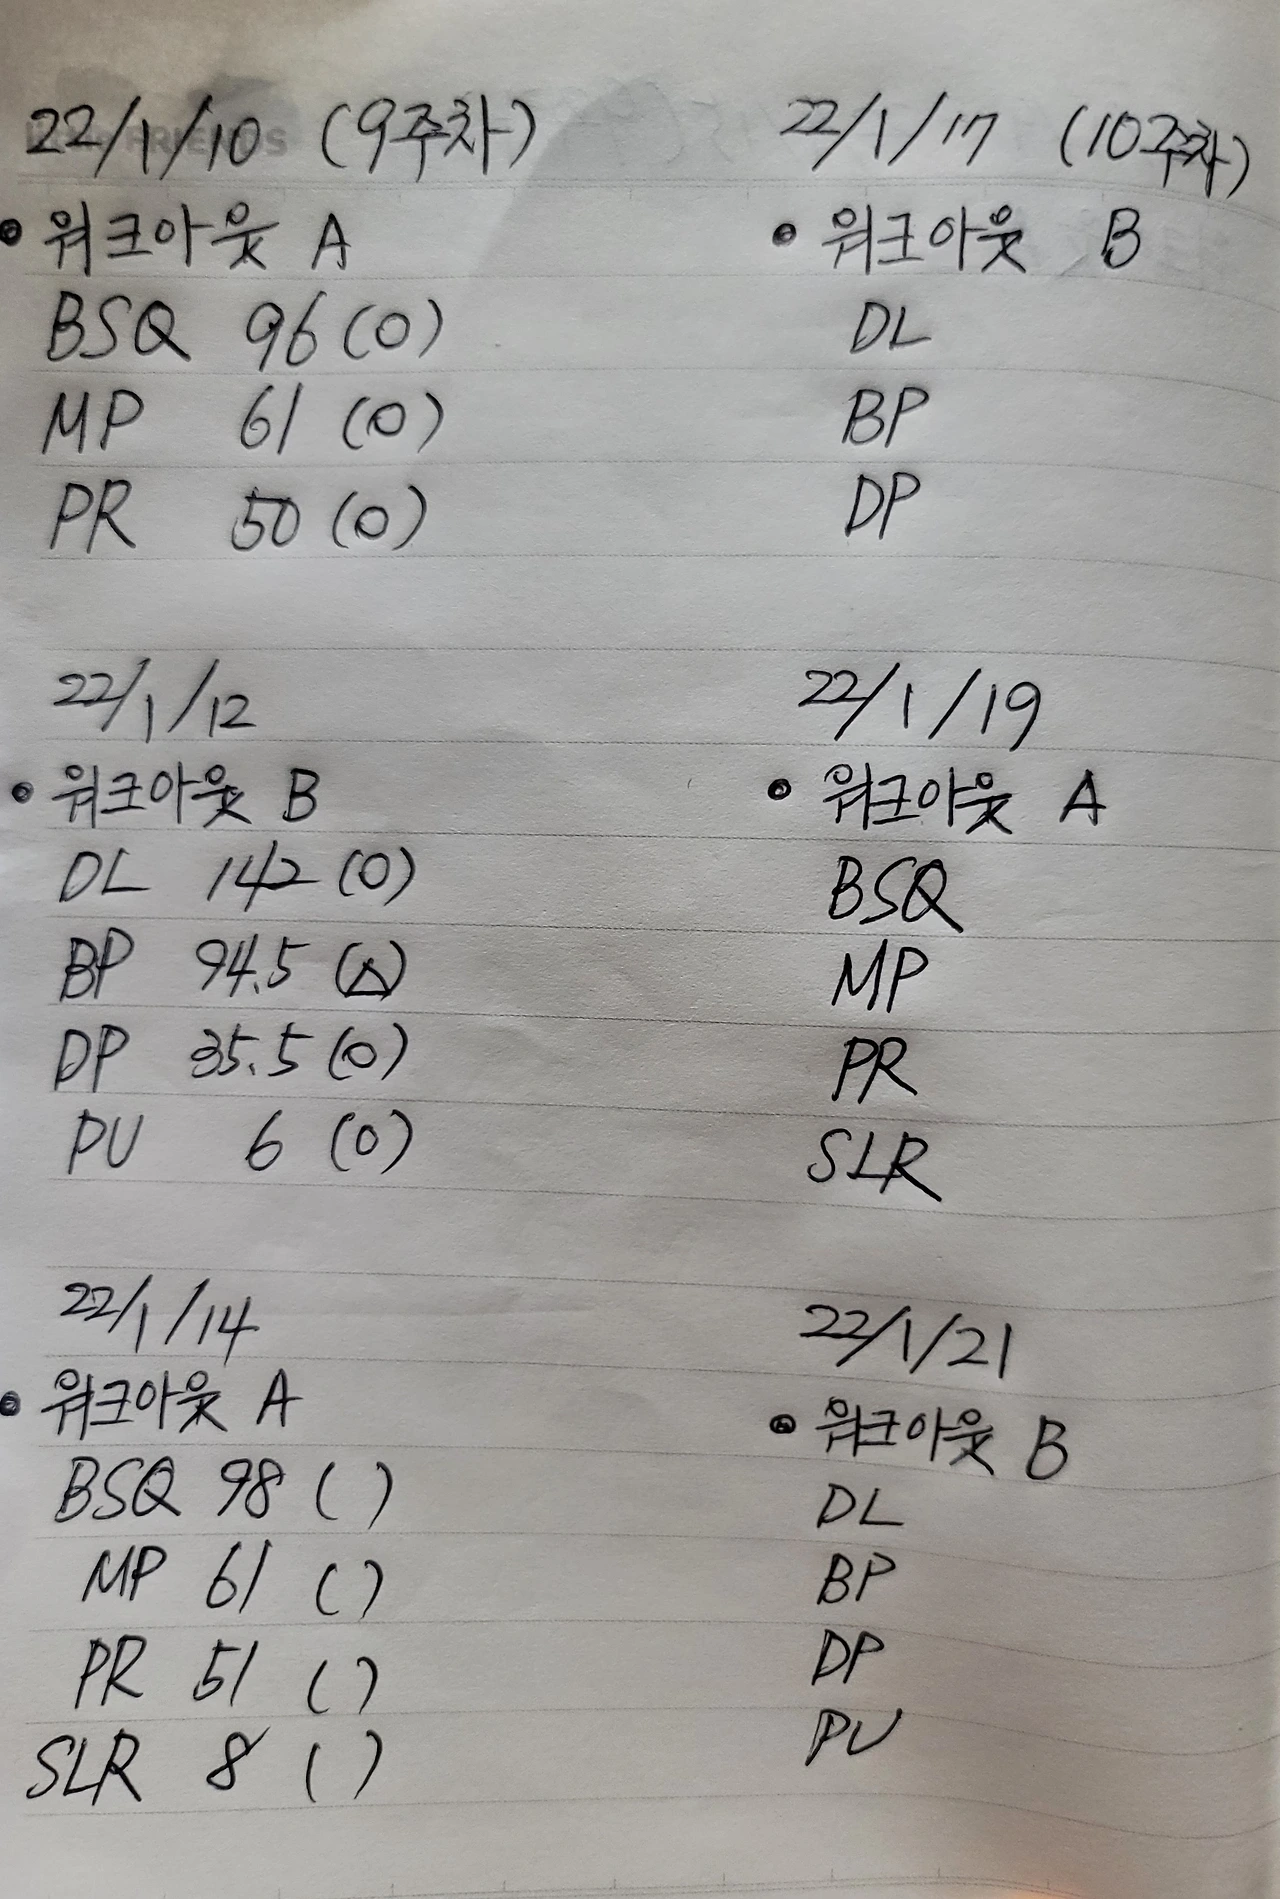 22/1/10 (9주차)
• 워크아웃 A
BSQ 96 (O)
MP 61 (O)
PR 50 (O)
22/1/12
• 워크아웃 B
DL 142 (O)
BP 94.5 (△)
DP 35.5 (O)
PU 6 (O)
22/1/14
• 워크아웃 A
BSQ 98 ( )
MP 61 ( )
PR 51 ( )
SLR 8 ( )
22/1/17 (10주차)
• 워크아웃 B
DL
BP
DP
22/1/19
• 워크아웃 A
BSQ
MP
PR
SLR
22/1/21
• 워크아웃 B
DL
BP
DP
PU